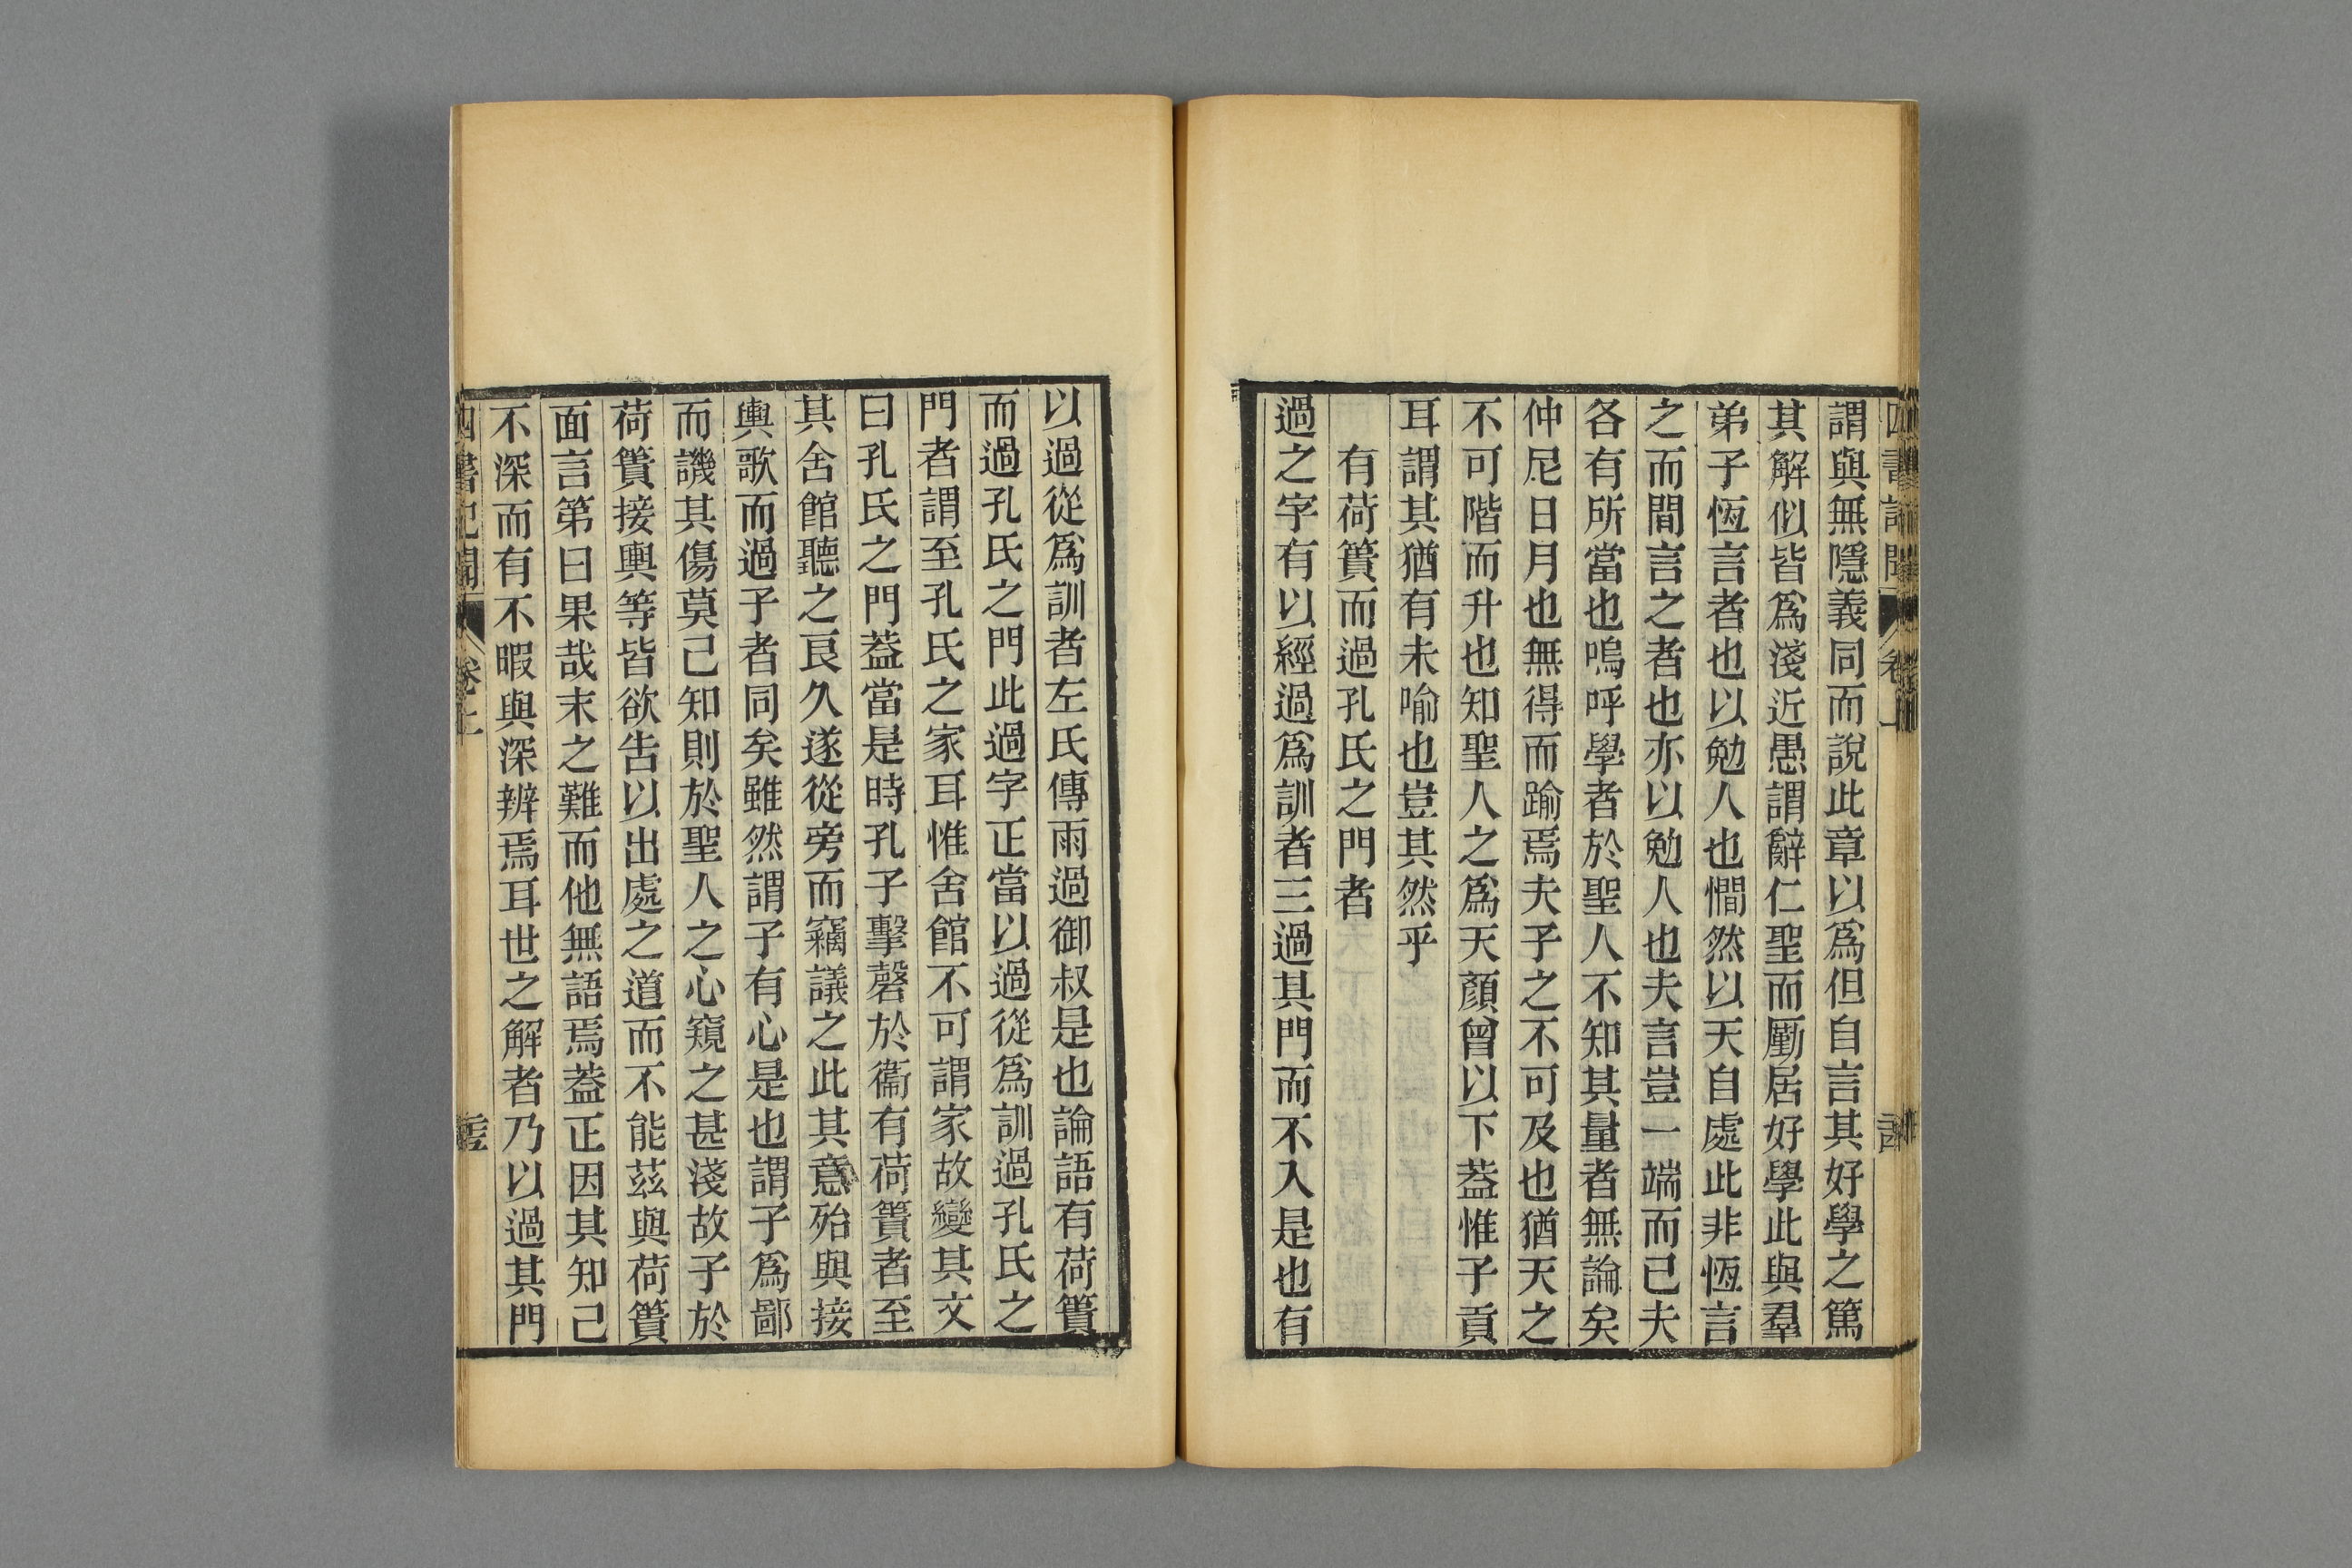 謂與無隱義同而說此章以爲但自言其好學之篤
其解似皆爲淺近愚謂辭仁聖而勵居好學此與羣
弟子恆言者也以勉人也憪然以天自處此非恆言
之而間言之者也亦以勉人也夫言豈一端而已夫
各有所當也嗚呼學者於聖人不知其量者無論矣
仲尼日月也無得而踰焉夫子之不可及也猶天之
不可階而升也知聖人之爲天顏曾以下葢惟子貢
耳謂其猶有未喻也豈其然乎
有荷簣而過孔氏之門者
過之字有以經過爲訓者三過其門而不入是也有
以過從爲訓者左氏傳雨過御叔是也論語有荷簣
而過孔氏之門此過字正當以過從爲訓過孔氏之
門者謂至孔氏之家耳惟舍館不可謂家故變其文
曰孔氏之門葢當是時孔子擊磬於衞有荷簣者至
其舍館聽之良久遂從旁而竊議之此其意殆與接
輿歌而過子者同矣雖然謂子有心是也謂子爲鄙
而譏其傷莫己知則於聖人之心窺之甚淺故子於
荷簣接輿等皆欲告以出處之道而不能茲與荷簣
面言第曰果哉末之難而他無語焉葢正因其知己
不深而有不暇與深辨焉耳世之解者乃以過其門
四書記聞
卷上